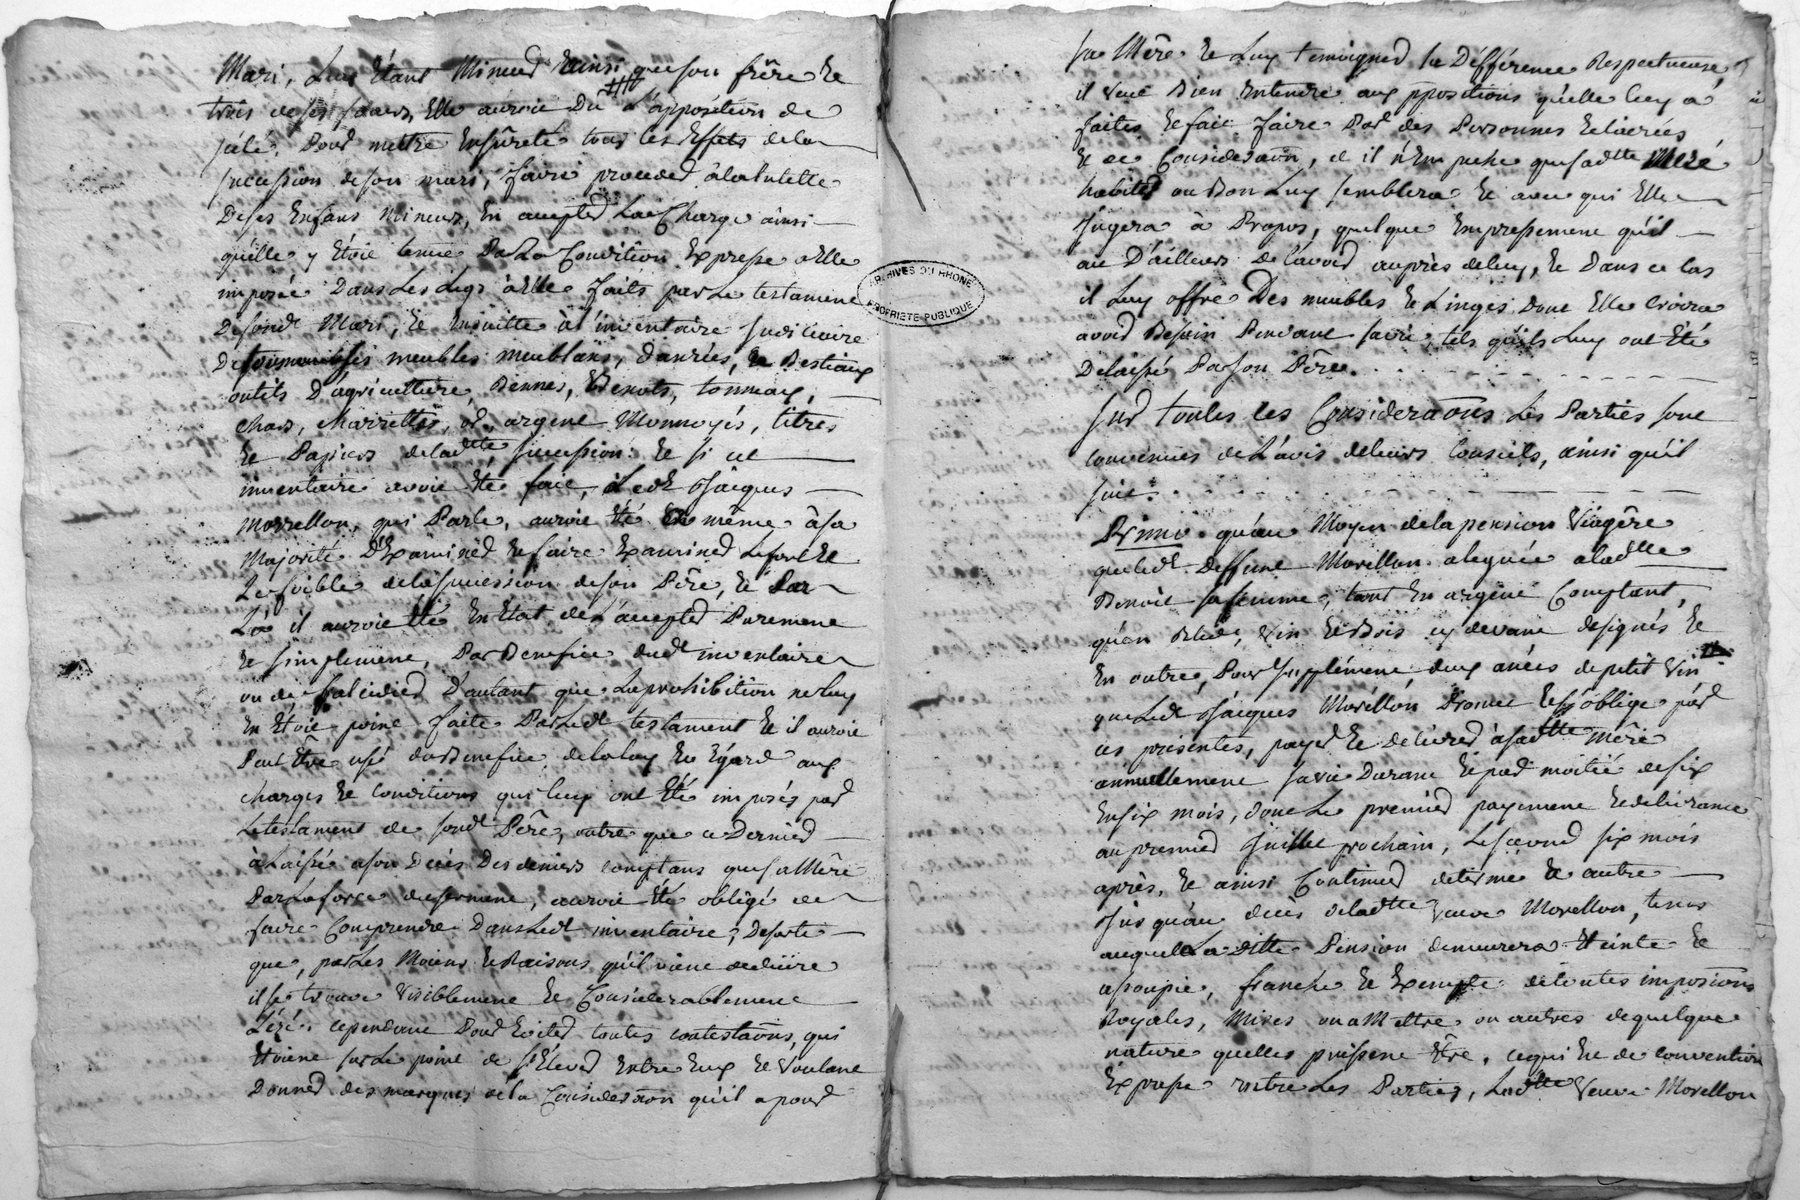 Mari, Luy Étant Mineur Einsi que son frère Et
trois de ses soeurs, Elle auroit Du L'apposition de
sélé, Pour mettre En sûreté tous les Effets de la
succession de son mari, faire proceder à la tutelle
De ses Enfans Mineurs, En accepter La Charge ainsi
qu'elle y Étoit tenue Par La Condition Expresse a Elle
imposée Dans Les Legs à Elle faits par Le testament
De sond.t Mari, Et Ensuitte à l'inventaire Judiciaire
De meubles meublans, danrées, Et Bestiaux
outils D'agriculture, Bennes, Benots, tonneaux,
chars, charrettes, or, argent Monnoyés, titres
Et Papiers de ladtte succession: Et si cet
inventaire avoit Été fait, led.t Jacques
Morrellon, qui Parle, auroit Été à même à sa
Majorité D'Examiner Et faire Examiner Le fort Et
Le foible de la succession de son Père, Et Par
Là il auroit Été En Etat de L'accepter Purement
Et simplement, Par Benefice dud.t inventaire
ou de falcidier D'autant que La prohibition ne luy
En Étoit point faite Par Led.t testament Et il auroit
Peut Être usé du Benefice de la loy Eu Égard aux
charges Et conditions qui luy ont Été imposés par
Le testament de sond.t Père, outre que ce Dernier
à Laissé a son Decès Des deniers comptans que sa Mère
Par La force du serment, auroit Été obligé de
faire Comprendre Dans Led.t inventaire; De sorte
que, par Les Moiens Et Raisons qu'il vient dedüire
il se trouve Visiblement Et Considerablement
Lézé. cependant Pour Eviter toutes contestaõns, qui
Étoient sur Le point de s'Élever Entre Eux Et Voulant
Donner des marques de la Consideraõn qu'il a pour
sa Mère Et Luy temoigner la Défférence Respectueuse
il Veut Bien Entendre aux ppositions qu'elle luy a
faites Et fait faire Par des Personnes
Et de Consideraõn, Et il n'Empeche que sadtte Meré
habite ou Bon Luy semblera Et avec qui Elle
Jugera à Propos, quelque Empressement qu'il
ait D'ailleurs De l'avoir auprès de luy, Et Dans ce Cas
il Luy offre Des meubles Et Linges Dont Elle Croira
avoir Besoin Pendant sa vie, tels qu'ils Luy ont Été
Delaissé Par son Père.
Sur toutes les Consideraõns Les Parties sont
convenües de L'avis de leurs Conseils, ainsi qu'il
suit:
Primo qu'au Moyen de la pension Viagère
que led.t Deffunt Morellon a leguée a ladtte
Benoit sa femme, tant En argent Comptant,
qu'en Bled, Vin Et Bois cy devant designés, Et
En outre, Pour supplément deux anées de petit Vin
que Led.t Jacques Moréllon Promet Et s'oblige par
ces présentes, payer Et Delivrer à sadtte Mère
annuellement sa vie Durant Et par moitié de six
En six mois, dont Le premier payement Et delivrance
au premier Juillet prochain, Le second six mois
après, Et ainsi Continuer de terme En autre
Jusqu'au decès deladtte Veuve Morellon, tems
auquel La ditte Pension demeurera Eteinte Et
assoupie, franche Et Exempte de toutes imposiõns
Royales, Mises ou a Mettre ou autres de quelque
nature quelles puissent Être, ce qui Est de convention
Expresse entre Les Parties, Ladtte Veuve Morellon
ARCHIVES DU RHONE
PROPRIETE PUBLIQUE